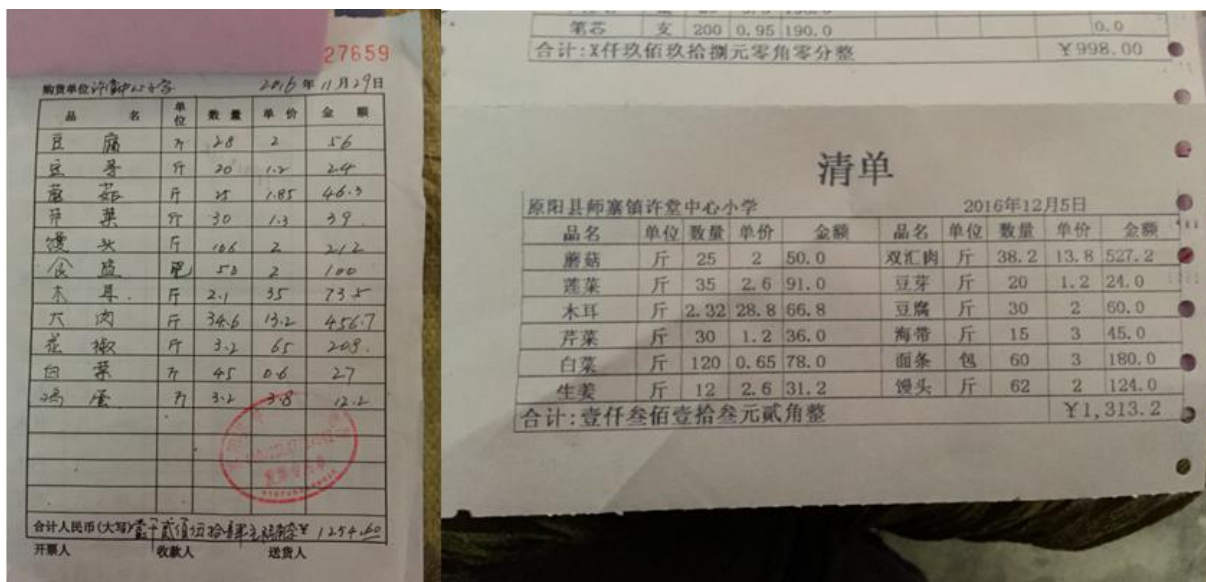 27659
购货单位 许堂中心小学 2016年11月29日
品 名 单位 数量 单价 金额
豆腐 斤 28 2 56
豆芽 斤 20 1.2 24
蘑菇 斤 25 1.85 46.3
芹菜 斤 30 1.3 39
馒头 斤 106 2 212
食盐 包 50 2 100
木耳 斤 2.1 35 73.5
大肉 斤 34.6 13.2 456.7
花椒 斤 3.2 65 208.
白菜 斤 45 0.6 27
鸡蛋 斤 3.2 3.8 12.2
合计人民币(大写) 壹千贰佰伍拾肆元 ¥ 1254.60
开票人 收款人 送货人
笔芯 支 200 0.95 190.0 0.0
合计:X仟玖佰玖拾捌元零角零分整 ¥998.00
清单
原阳县师寨镇许堂中心小学 2016年12月5日
品名 单位 数量 单价 金额 品名 单位 数量 单价 金额
蘑菇 斤 25 2 50.0 双汇肉 斤 38.2 13.8 527.2
莲菜 斤 35 2.6 91.0 豆芽 斤 20 1.2 24.0
木耳 斤 2.32 28.8 66.8 豆腐 斤 30 2 60.0
芹菜 斤 30 1.2 36.0 海带 斤 15 3 45.0
白菜 斤 120 0.65 78.0 面条 包 60 3 180.0
生姜 斤 12 2.6 31.2 馒头 斤 62 2 124.0
合计:壹仟叁佰壹拾叁元贰角整 ¥1,313.2